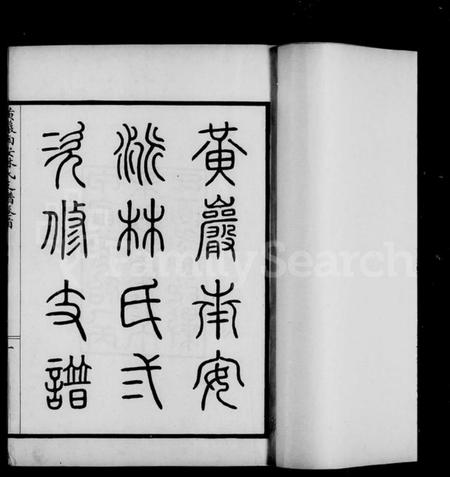 黃巖南安
派林氏弍
次修支譜
FamilySearch